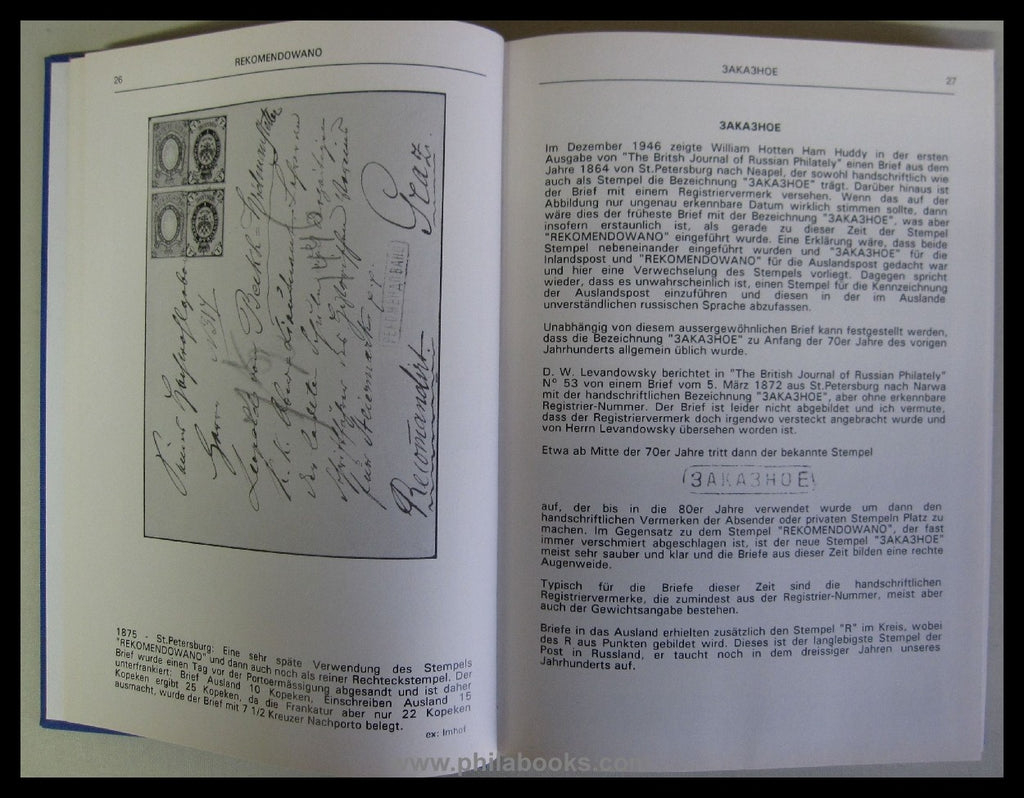 26
REKOMENDOWANO
Recomandirt.
Graz.
1875 - St.Petersburg: Eine sehr späte Verwendung des Stempels
"REKOMENDOWANO" und dann auch noch als reiner Rechteckstempel. Der
Brief wurde einen Tag vor der Portoermässigung abgesandt und ist daher
unterfrankiert: Brief Ausland 10 Kopeken, Einschreiben Ausland 15
Kopeken ergibt 25 Kopeken, da die Frankatur aber nur 22 Kopeken
ausmacht, wurde der Brief mit 7 1/2 Kreuzer Nachporto belegt.
ex: Imhof
ЗАКАЗНОЕ
27
ЗАКАЗНОЕ
Im Dezember 1946 zeigte William Hotten Ham Huddy in der ersten
Ausgabe von "The Britsh Journal of Russian Philately" einen Brief aus dem
Jahre 1864 von St.Petersburg nach Neapel, der sowohl handschriftlich wie
auch als Stempel die Bezeichnung "ЗАКАЗНОЕ" trägt. Darüber hinaus ist
der Brief mit einem Registriervermerk versehen. Wenn das auf der
Abbildung nur ungenau erkennbare Datum wirklich stimmen sollte, dann
wäre dies der früheste Brief mit der Bezeichnung "ЗАКАЗНОЕ", was aber
insofern erstaunlich ist, als gerade zu dieser Zeit der Stempel
"REKOMENDOWANO" eingeführt wurde. Eine Erklärung wäre, dass beide
Stempel nebeneinander eingeführt wurden und "ЗАКАЗНОЕ" für die
Inlandspost und "REKOMENDOWANO" für die Auslandspost gedacht war
und hier eine Verwechselung des Stempels vorliegt. Dagegen spricht
wieder, dass es unwahrscheinlich ist, einen Stempel für die Kennzeichnung
der Auslandspost einzuführen und diesen in der im Auslande
unverständlichen russischen Sprache abzufassen.
Unabhängig von diesem aussergewöhnlichen Brief kann festgestellt werden,
dass die Bezeichnung "ЗАКАЗНОЕ" zu Anfang der 70er Jahre des vorigen
Jahrhunderts allgemein üblich wurde.
D. W. Levandowsky berichtet in "The British Journal of Russian Philately"
N° 53 von einem Brief vom 5. März 1872 aus St.Petersburg nach Narwa
mit der handschriftlichen Bezeichnung "ЗАКАЗНОЕ", aber ohne erkennbare
Registrier-Nummer. Der Brief ist leider nicht abgebildet und ich vermute,
dass der Registriervermerk doch irgendwo versteckt angebracht wurde und
von Herrn Levandowsky übersehen worden ist.
Etwa ab Mitte der 70er Jahre tritt dann der bekannte Stempel
ЗАКАЗНОЕ
auf, der bis in die 80er Jahre verwendet wurde um dann den
handschriftlichen Vermerken der Absender oder privaten Stempeln Platz zu
machen. Im Gegensatz zu dem Stempel "REKOMENDOWANO", der fast
immer verschmiert abgeschlagen ist, ist der neue Stempel "ЗАКАЗНОЕ"
meist sehr sauber und klar und die Briefe aus dieser Zeit bilden eine rechte
Augenweide.
Typisch für die Briefe dieser Zeit sind die handschriftlichen
Registriervermerke, die zumindest aus der Registrier-Nummer, meist aber
auch der Gewichtsangabe bestehen.
Briefe in das Ausland erhielten zusätzlich den Stempel "R" im Kreis, wobei
des R aus Punkten gebildet wird. Dieses ist der langlebigste Stempel der
Post in Russland, er taucht noch in dem dreissiger Jahren unseres
Jahrhunderts auf.
www.philabooks.com